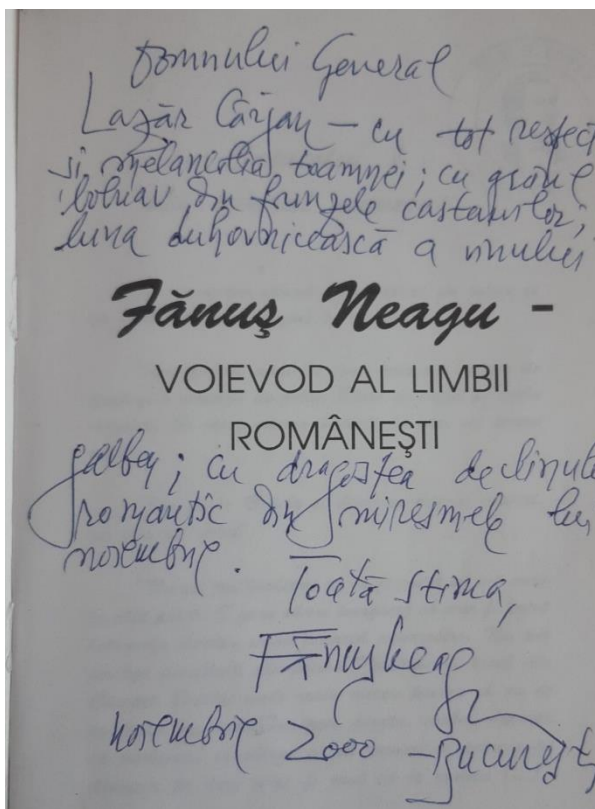 Domnului General
Lazăr Cârjan – cu tot respect
și melancolia toamnei; cu
bolnav din frunzele castanilor;
luna duhovnicească a vinului
Fănuș Neagu -
VOIEVOD AL LIMBII
ROMÂNEȘTI
galben; cu dragostea declinul
romantic din miresmele lui
noiembrie. Toată stima,
Fănuș Neag
noiembrie 2000 – București